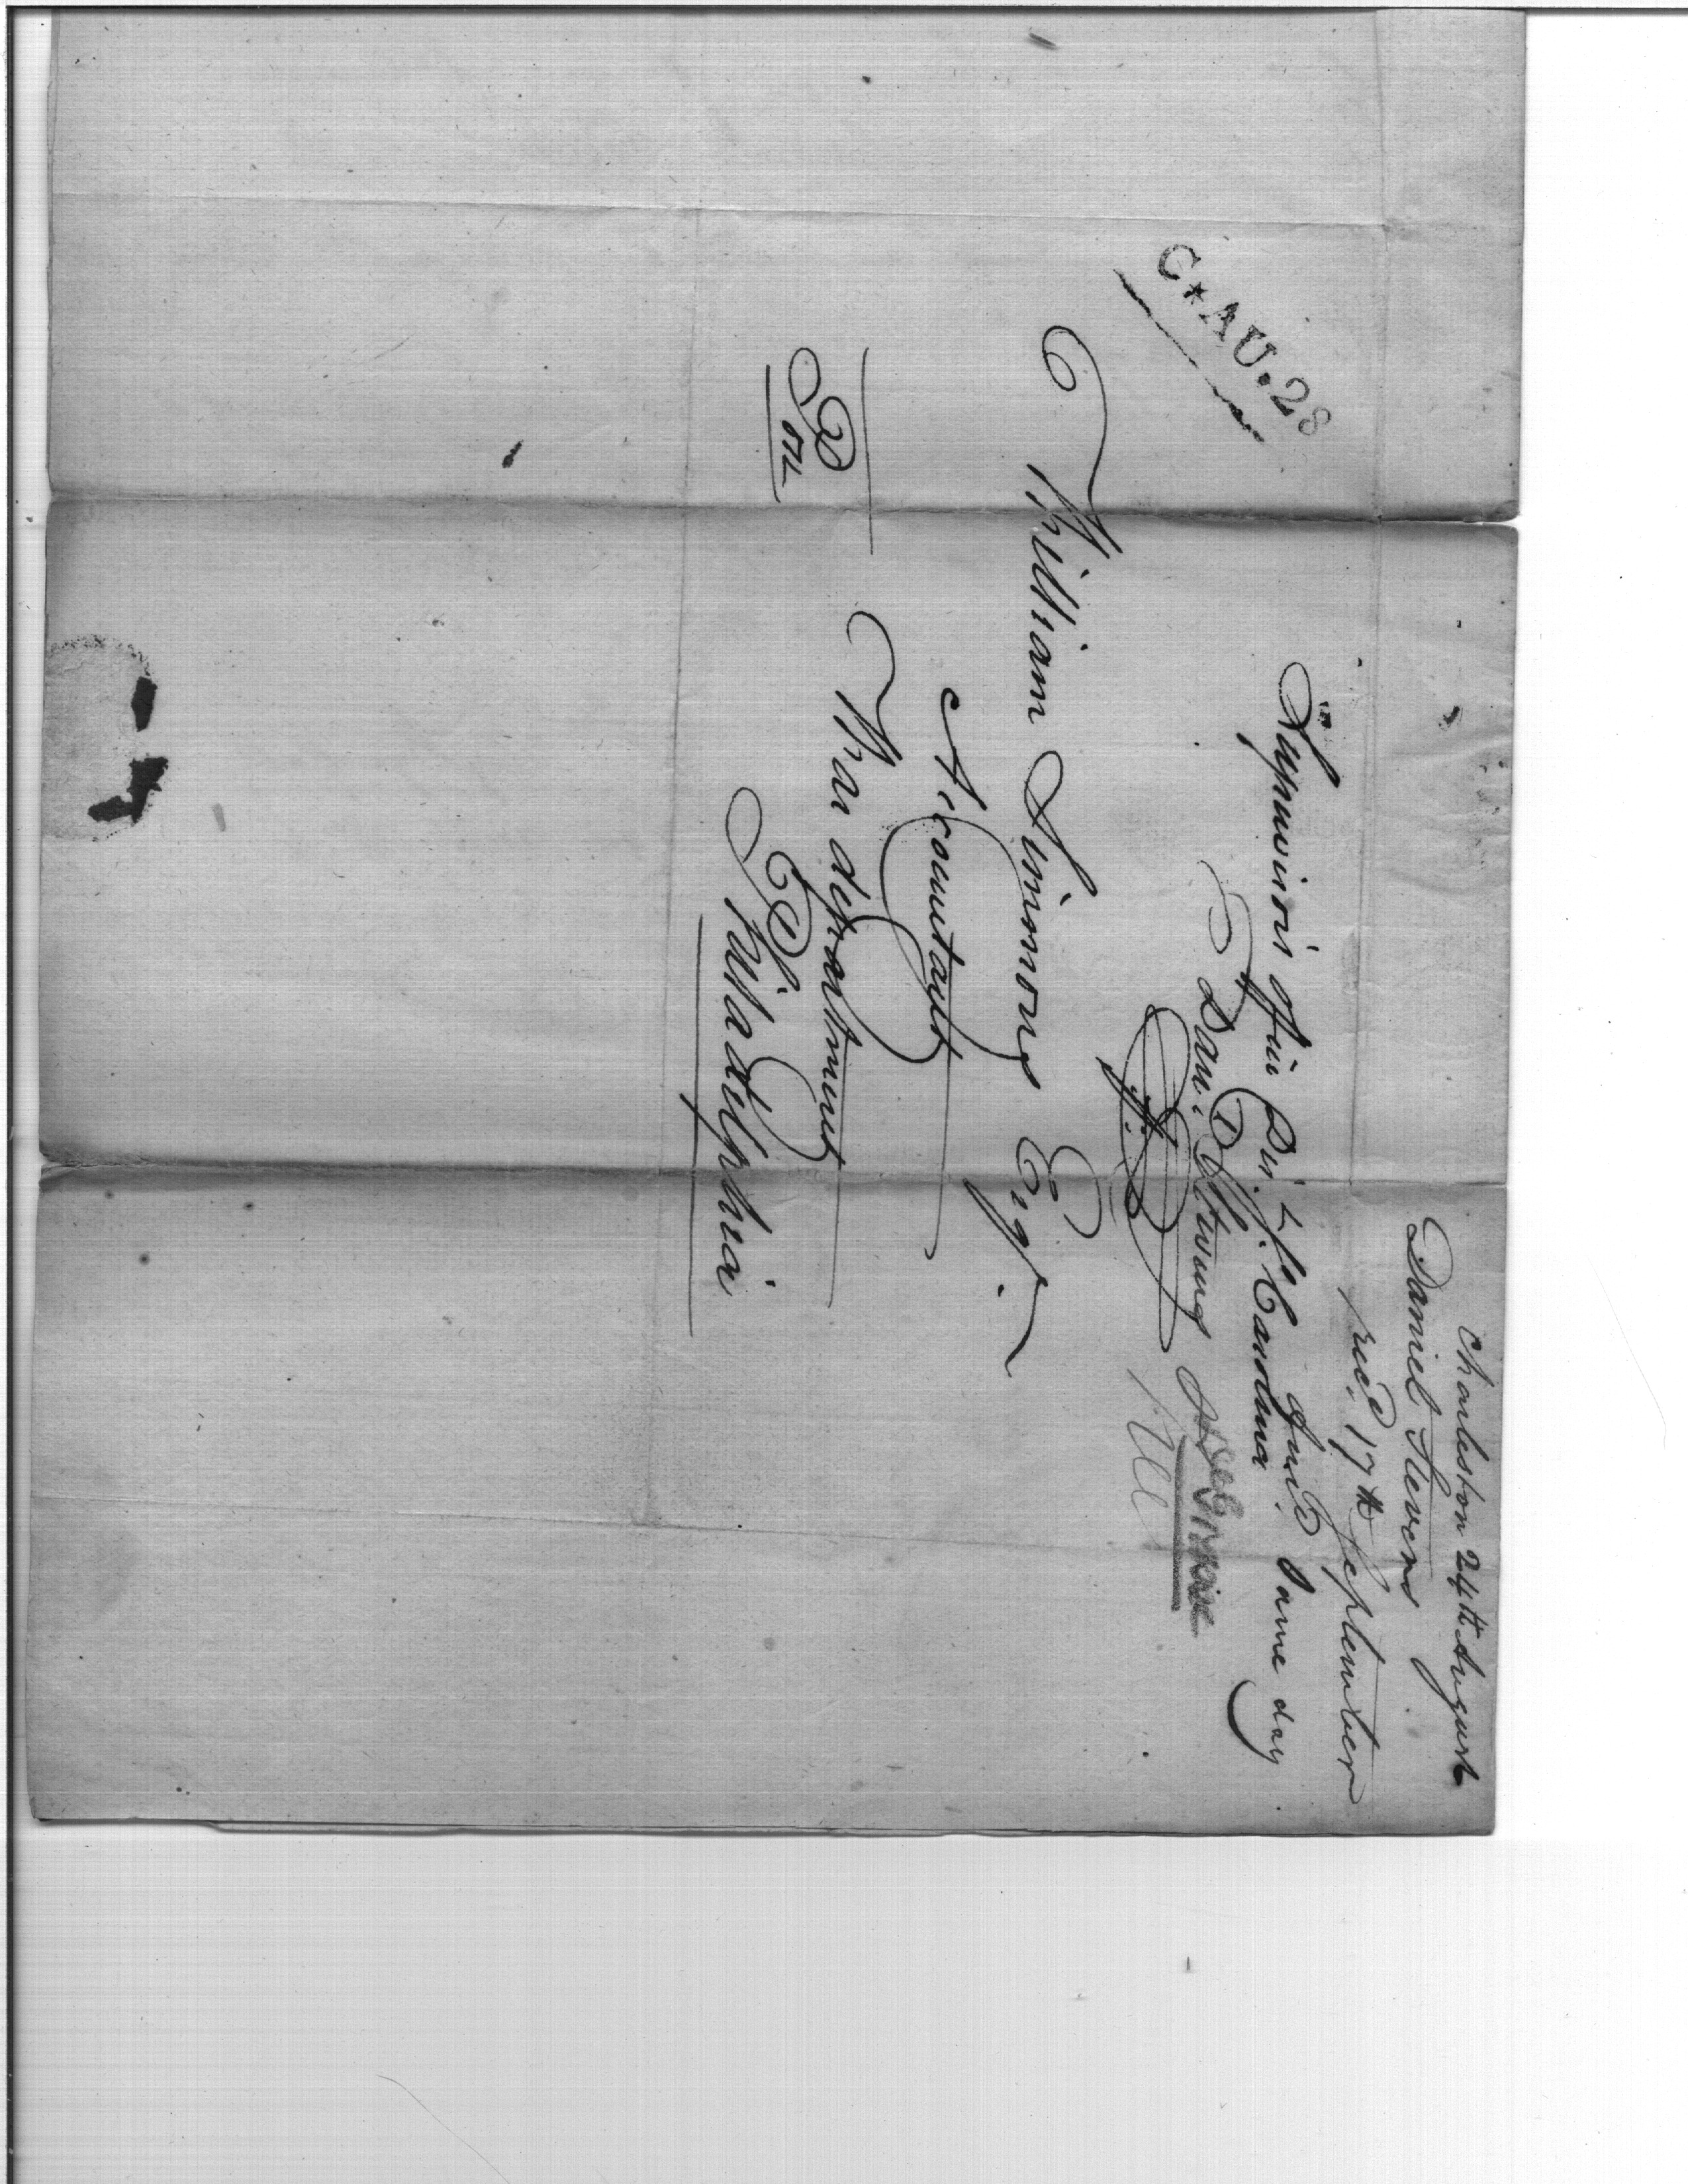 Charleston 24th August
Daniel Stevens
rec'd. 17th September
Ans'd. Same day
C*AU.28
Supervisors Office Dis. So. Carolina
Dan. Stevens
William Simmons Esqr.
Accountant
War department
Philadelphia